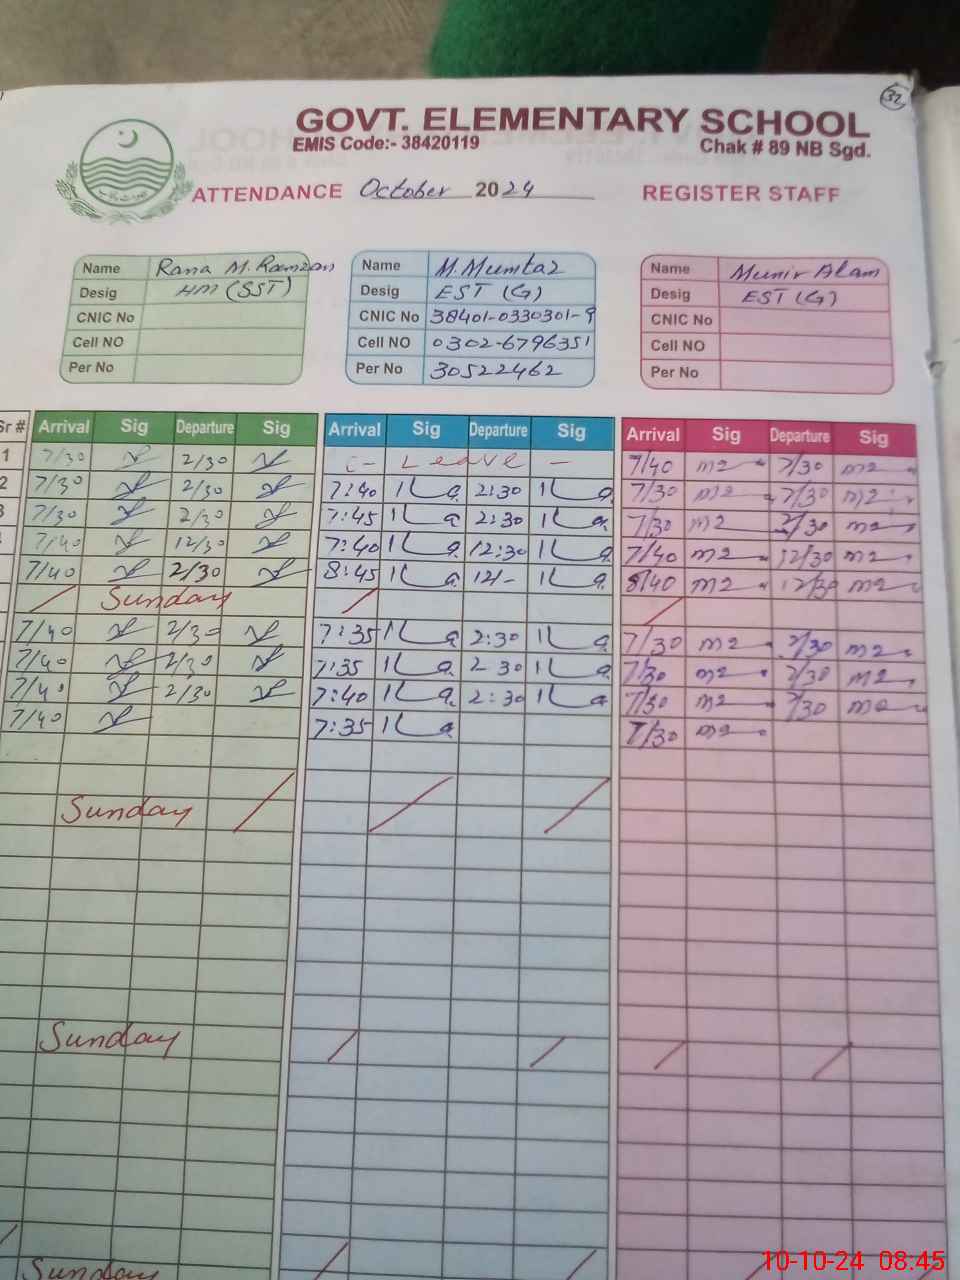 32
GOVT. ELEMENTARY SCHOOL
EMIS Code:- 38420119 Chak # 89 NB Sgd.
ATTENDANCE October 2024 REGISTER STAFF
Name Rana M. Ramzan Name M. Mumtaz Name Munir Alam
Desig HM (SST) Desig EST (G) Desig EST (G)
CNIC No CNIC No 38401-0330301-9 CNIC No
Cell NO Cell NO 0302-6796351 Cell NO
Per No Per No 30522462 Per No
Sr # Arrival Sig Departure Sig Arrival Sig Departure Sig Arrival Sig Departure Sig
1 7/30 2/30 C- Leave - 7/40 7/30
2 7/30 2/30 7:40 2:30 7/30 7/30
3 7/30 2/30 7:45 2:30 7/30 2/30
7/40 12/30 7:40 12:30 7/40 12/30
7/40 2/30 8:45 12/- 8/40 12/30
Sunday
7/40 2/30 7:35 2:30 7/30 2/30
7/40 2/30 7:35 2 30 7/30 2/30
7/40 2/30 7:40 2:30 7/30 2/30
7/40 7:35 7/30
Sunday
Sunday
Sunday
10-10-24 08:45